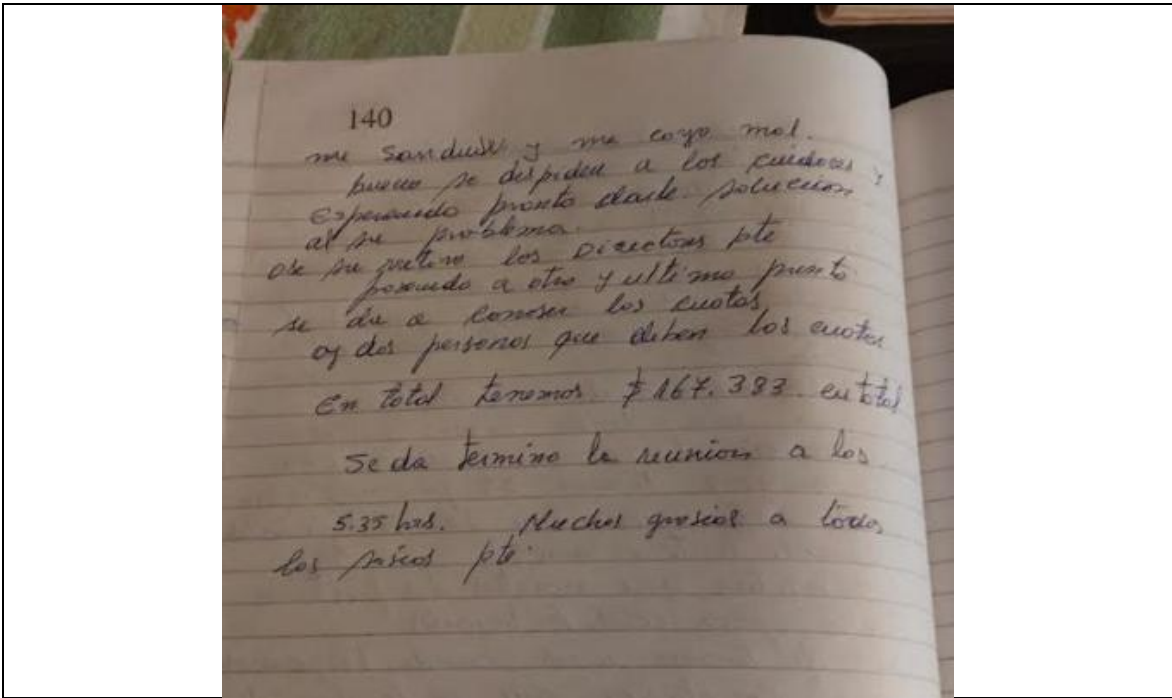 140
me sanduish y me cayo mal.
bueno se despiden a los y
esperando pronto darle solucion
al su problema.
se retiro los Directores pte
pasando a otro y ultimo punto
se da a conoser las cuotas
ay dos personas que deben las cuotas
En total tenemos $167.383. en total
Se da termino la reunion a las
5.35 hrs. Muchas grasias a todos
los sosios pte.